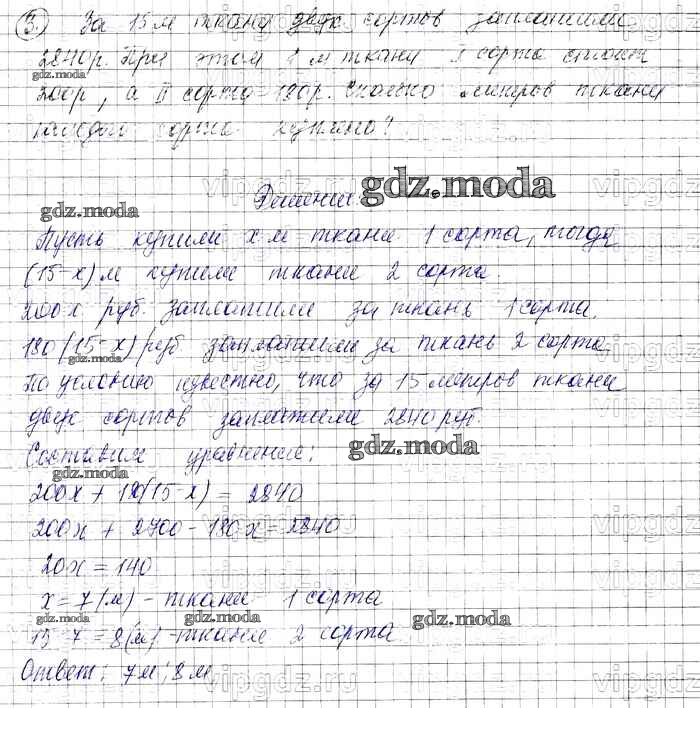 3. За 15 м ткани двух сортов заплатили
2840р. При этом 1 м ткани I сорта стоит
gdz.moda
200р, а II сорта 180р. Сколько метров ткани
каждого сорта куплено?
Решение:
gdz.moda
gdz.moda
Пусть купили x м ткани 1 сорта, тогда
(15-x) м купили ткани 2 сорта.
200x руб. заплатили за ткань 1 сорта.
180(15-x) руб заплатили за ткань 2 сорта
По условию известно, что за 15 метров ткани
двух сортов заплатили 2840 руб.
Составим уравнение:
gdz.moda
gdz.moda
200x + 180(15-x) = 2840
200x + 2700 - 180x = 2840
20x = 140
x = 7 (м) - ткани 1 сорта
gdz.moda
gdz.moda
gdz.moda
15-7 = 8(м) - ткани 2 сорта
Ответ: 7м; 8м
vipgdz.ru